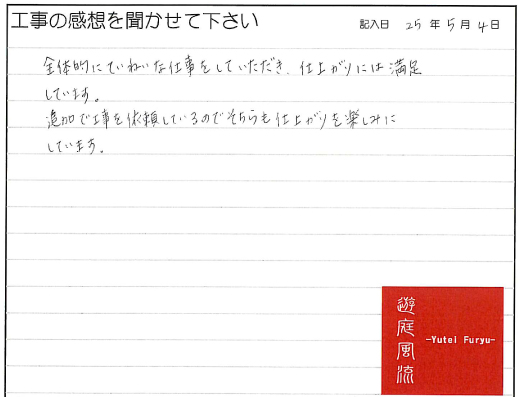 工事の感想を聞かせて下さい
記入日 25 年 5 月 4 日
全体的にていねいな仕事をしていただき、仕上がりには満足
しています。
追加で工事を依頼しているのでそちらも仕上がりを楽しみに
しています。
遊庭風流
-Yutei Furyu-